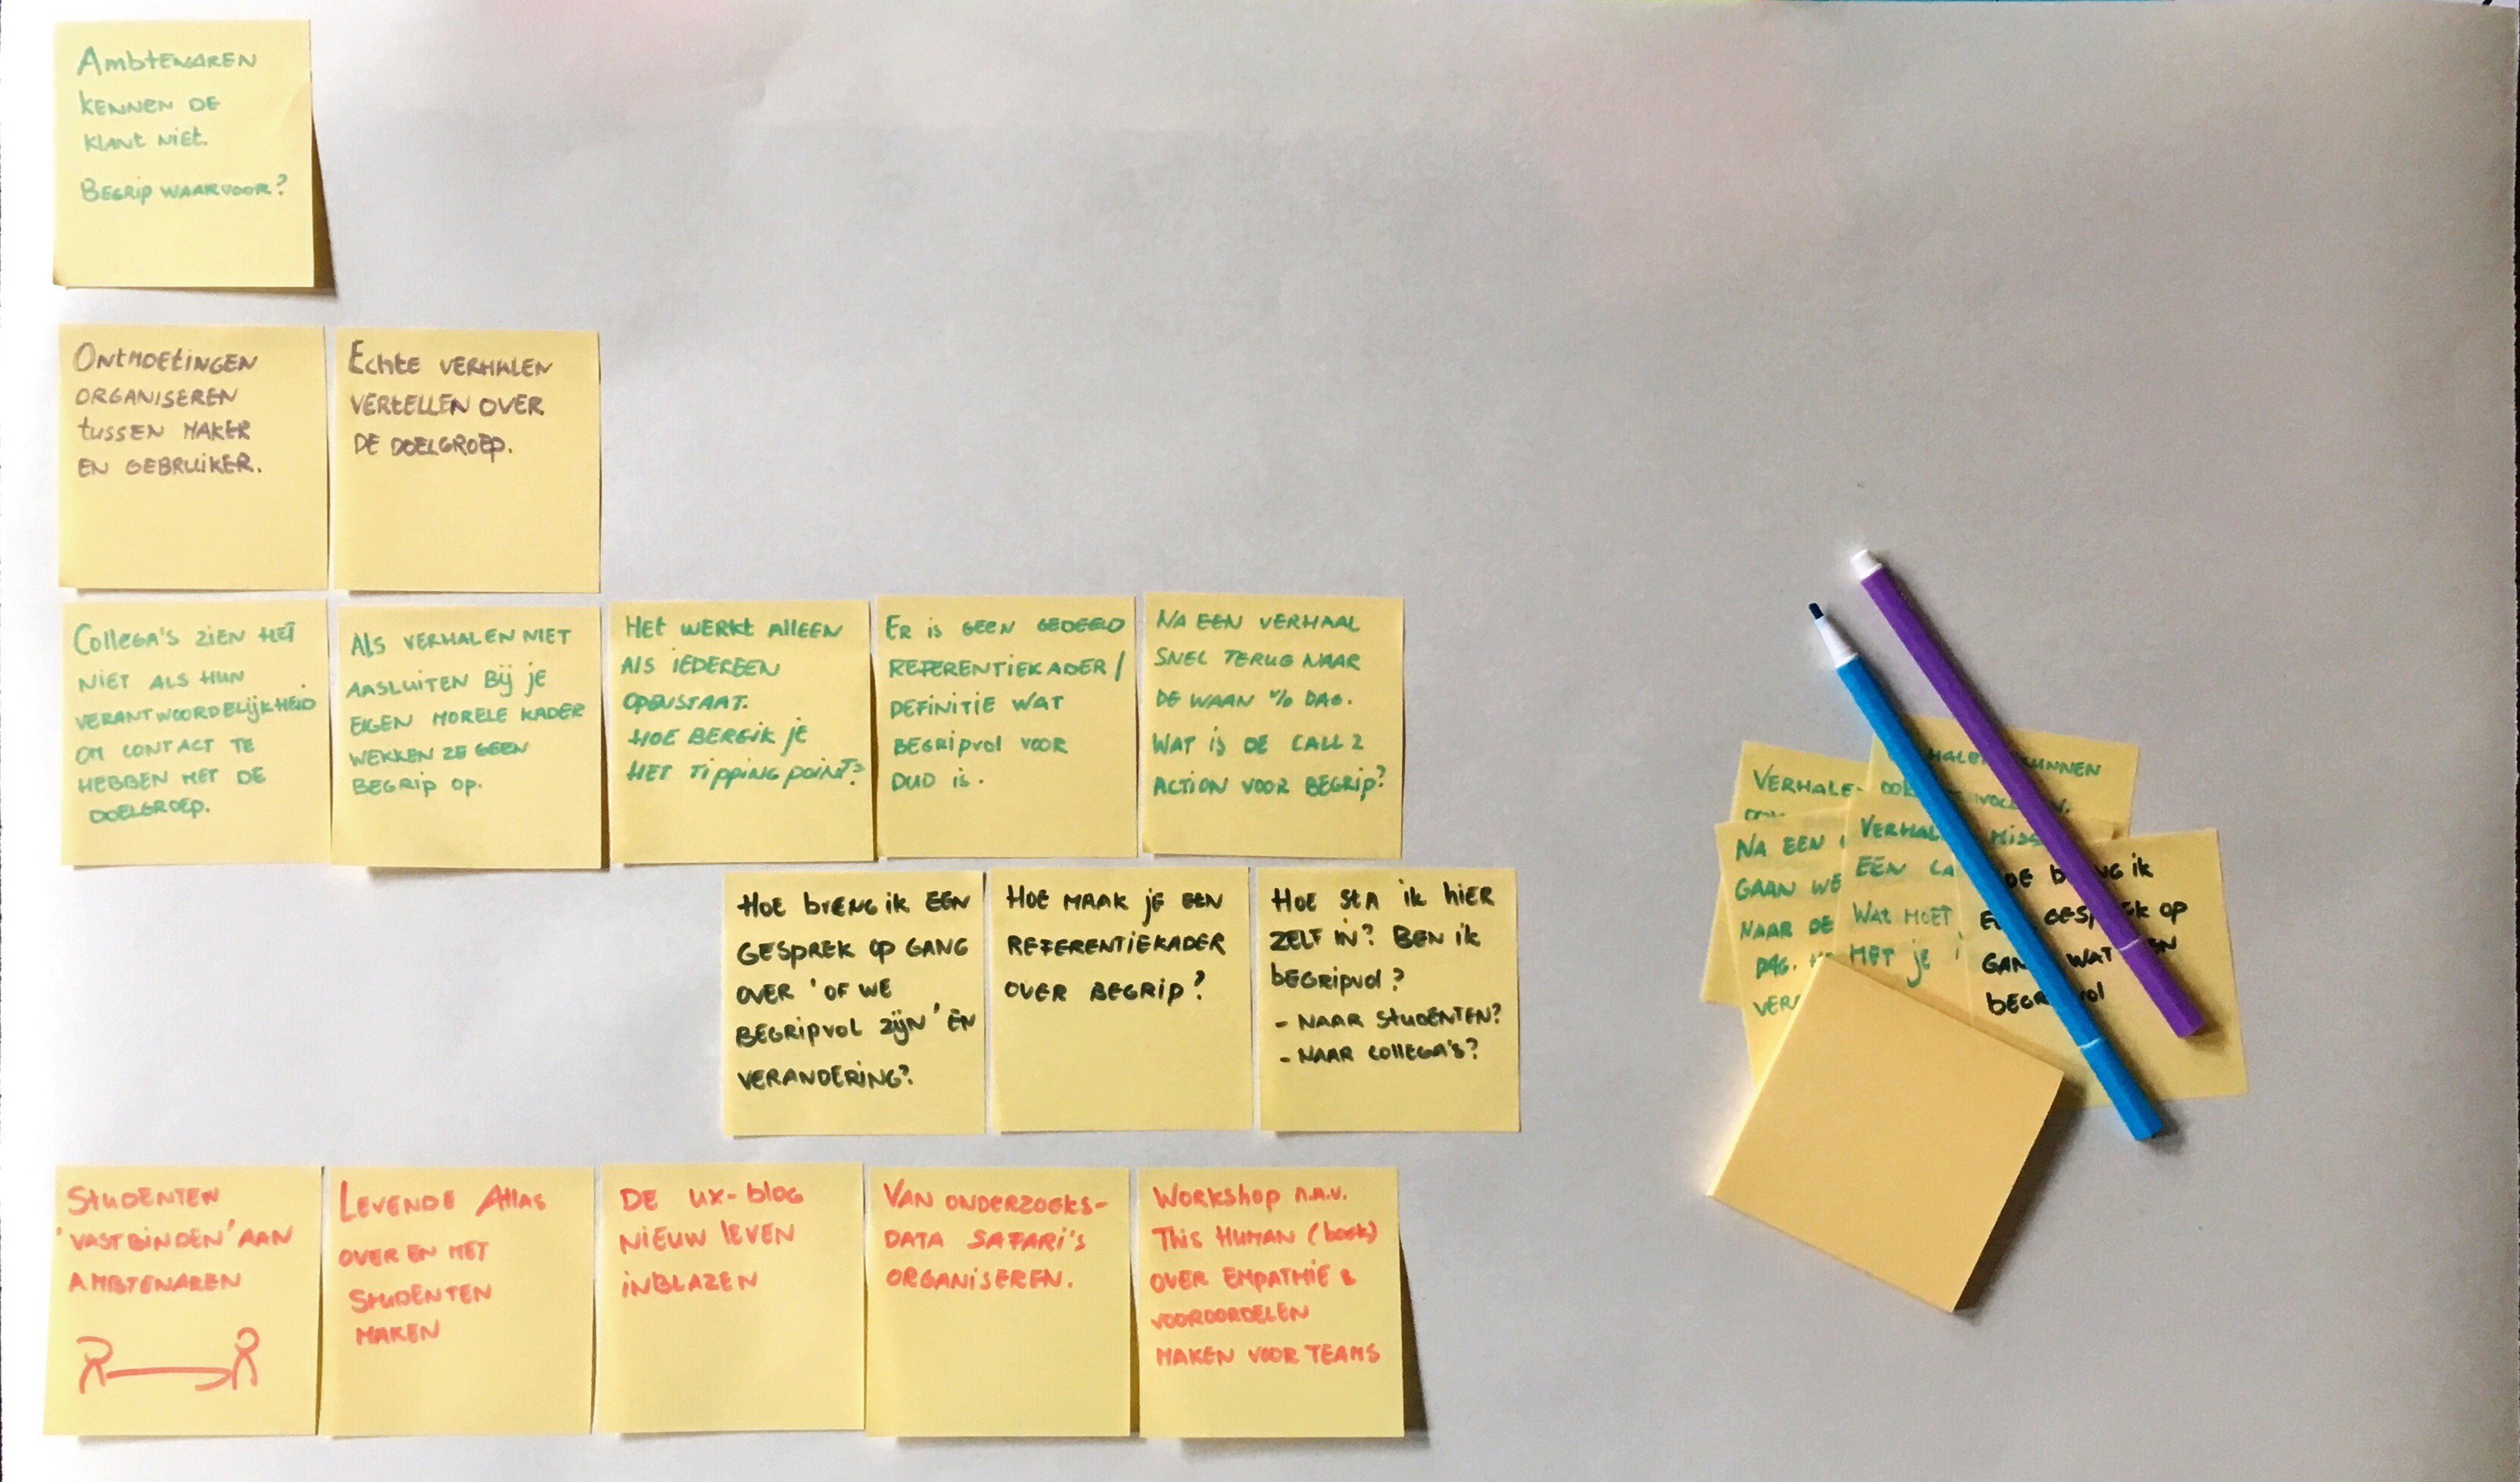 Ambtenaren
kennen de
klant niet.
Begrip waarvoor?
Ontmoetingen
organiseren
tussen maker
en gebruiker.
Echte verhalen
vertellen over
de doelgroep.
Collega's zien het
niet als hun
verantwoordelijkheid
om contact te
hebben met de
doelgroep.
Als verhalen niet
aasluiten bij je
eigen morele kader
wekken ze geen
begrip op.
Het werkt alleen
als iedereen
openstaat.
Hoe bereik je
het tipping point?
Er is geen gedeeld
referentiekader/
definitie wat
begripvol voor
DUO is.
Na een verhaal
snel terug naar
de waan v/d dag.
Wat is de call 2
action voor begrip?
Hoe breng ik een
gesprek op gang
over 'of we
begripvol zijn' en
verandering?
Hoe maak je een
referentiekader
over begrip?
Hoe sta ik hier
zelf in? Ben ik
begripvol?
- naar studenten?
- naar collega's?
Studenten
'vastbinden' aan
ambtenaren
Levende Atlas
over en met
studenten
maken
De ux-blog
nieuw leven
inblazen
Van onderzoeks-
data safari's
organiseren.
Workshop n.a.v.
This Human (boek)
over empathie &
vooroordelen
maken voor teams
Verhale
Na een
gaan we
naar de
dag.
Verhal
een ca
Wat moet
met je
ik
op
gan wat